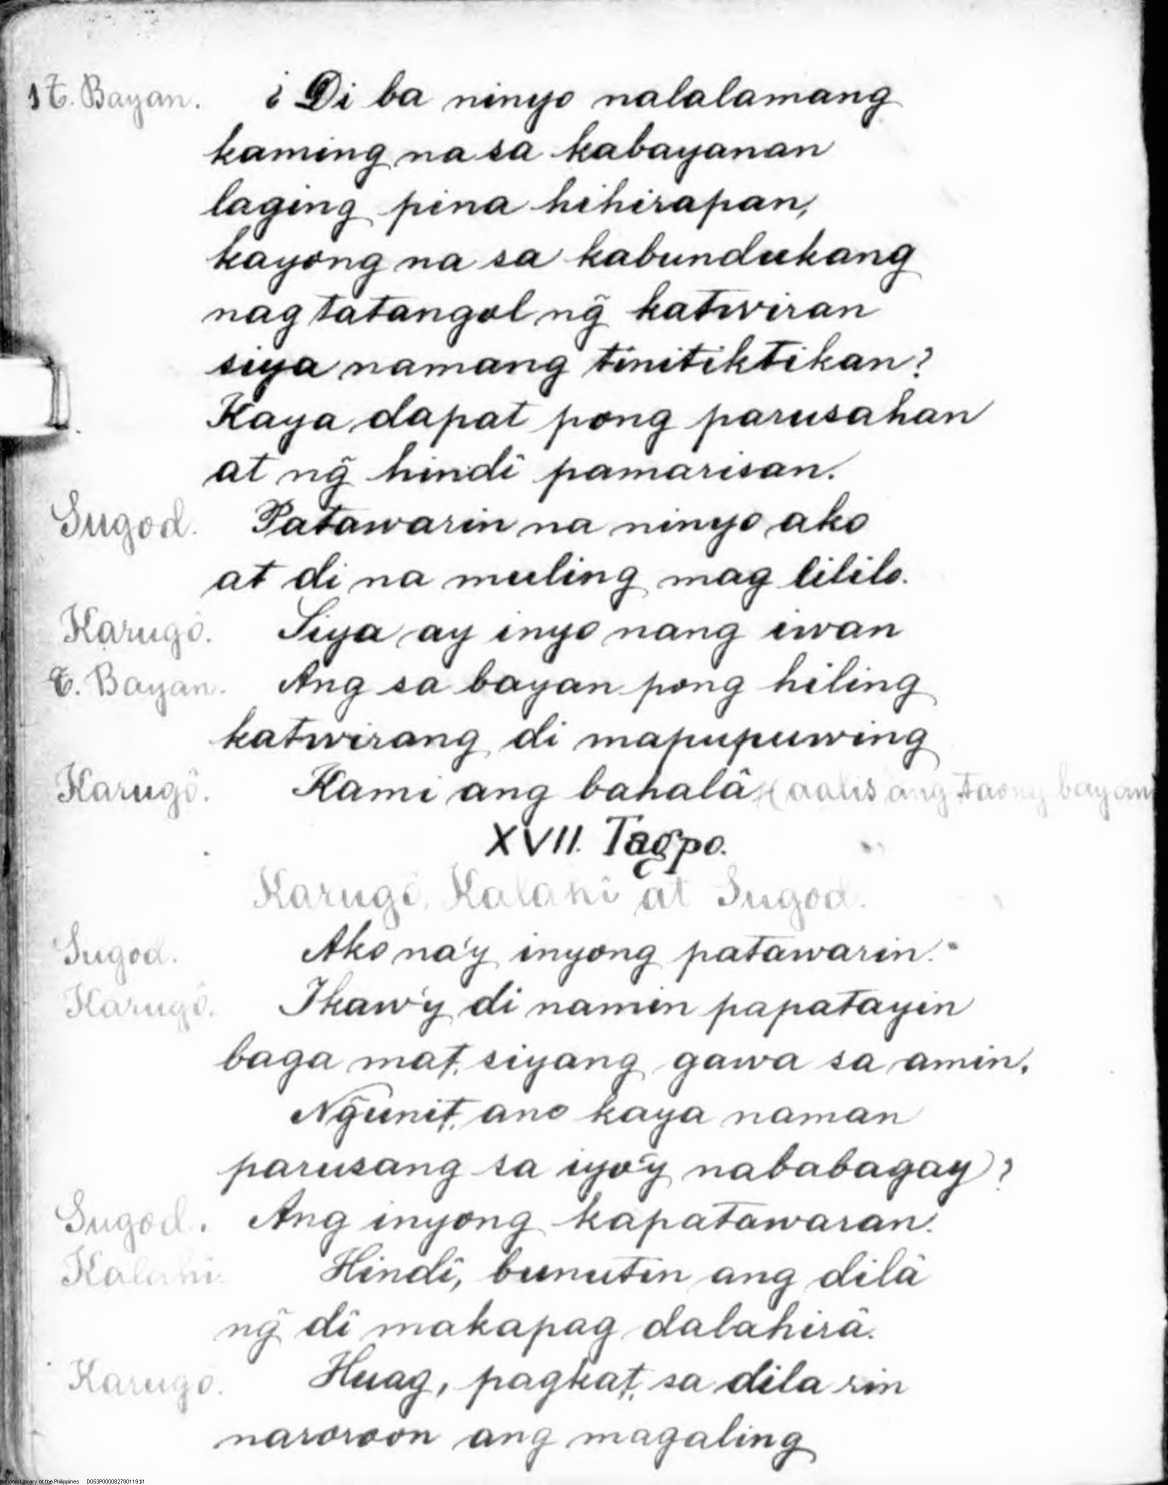 1 T. Bayan. ¿Di ba ninyo nalalamang
kaming na sa kabayanan
laging pina hihirapan,
kayong na sa kabundukang
nag tatangol ng̃ katwiran
siya namang tinitiktikan?
Kaya dapat pong parusahan
at ng̃ hindî pamarisan.
Sugod. Patawarin na ninyo ako
at di na muling mag lililo.
Karugô. Siya ay inyo nang iwan
T. Bayan. Ang sa bayan pong hiling
katwirang di mapupuwing
Karugô. Kami ang bahalâ (aalis ang taong bayan
XVII. Tagpo.
Karugô, Kalahi at Sugod.
Sugod. Ako na'y inyong patawarin.
Karugô. Ikaw'y di namin papatayin
baga mat, siyang gawa sa amin.
Ng̃unit, ano kaya naman
parusang sa iyo'y nababagay?
Sugod. Ang inyong kapatawaran.
Kalahi. Hindî, bunutin ang dilâ
ng̃ dî makapag dalahirâ.
Karugo. Huag, pagkat, sa dila rin
naroroon ang magaling
D053P00008279011931